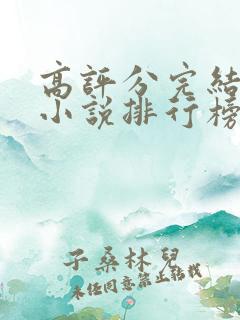 高評分完結
小說排行榜
子桑林兒
未任同意禁止轉載